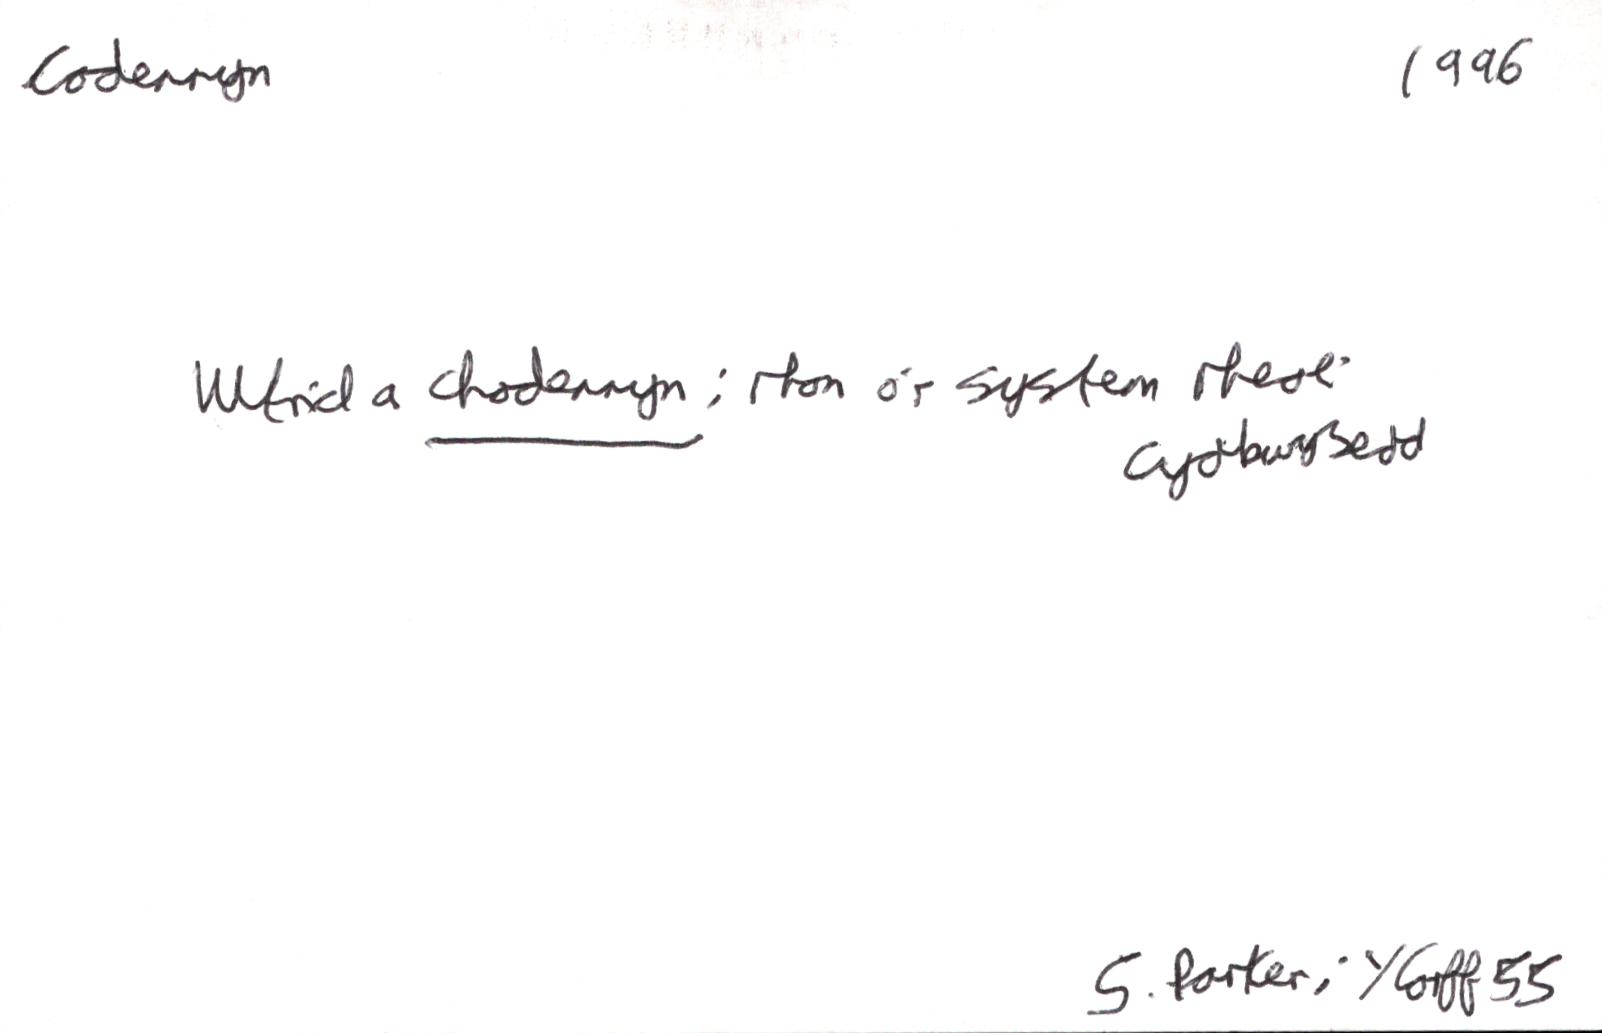 Codennyn 1996
Wtricl a chodennyn; rhan o'r system rheoli
Cydbwysedd
S. Parker; Y Corff 55